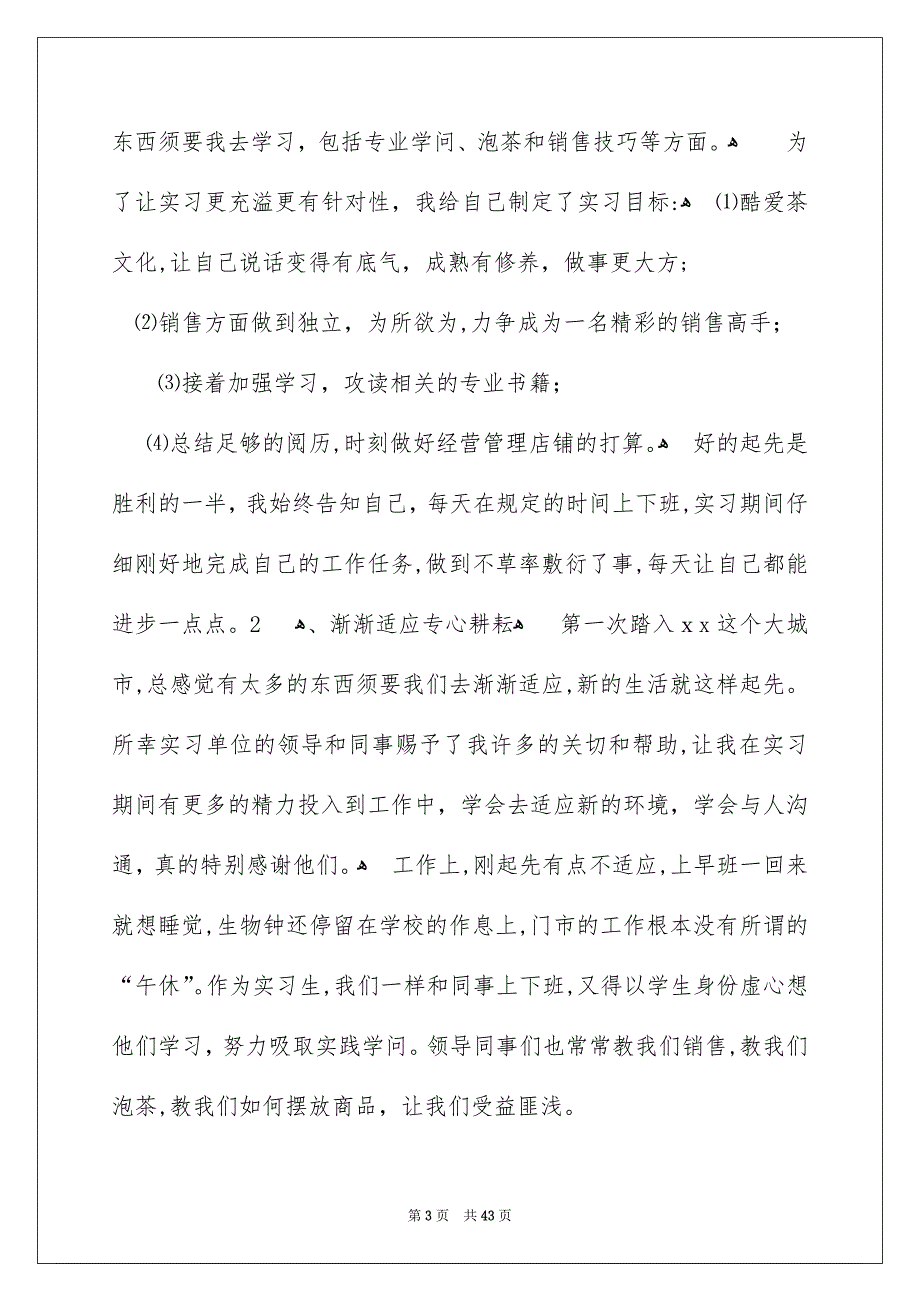 东西须要我去学习，包括专业学问、泡茶和销售技巧等方面。ﻫ　　为
了让实习更充溢更有针对性，我给自己制定了实习目标:ﻫ　⑴酷爱茶
文化,让自己说话变得有底气，成熟有修养，做事更大方;
⑵销售方面做到独立，为所欲为,力争成为一名精彩的销售高手；
⑶接着加强学习，攻读相关的专业书籍；
⑷总结足够的阅历,时刻做好经营管理店铺的打算。ﻫ　好的起先是
胜利的一半，我始终告知自己，每天在规定的时间上下班,实习期间仔
细刚好地完成自己的工作任务,做到不草率敷衍了事,每天让自己都能
进步一点点。2　ﻫ、渐渐适应专心耕耘ﻫ　　第一次踏入 x x 这个大城
市,总感觉有太多的东西须要我们去渐渐适应,新的生活就这样起先。
所幸实习单位的领导和同事赐予了我许多的关切和帮助,让我在实习
期间有更多的精力投入到工作中，学会去适应新的环境，学会与人沟
通，真的特别感谢他们。ﻫ　工作上,刚起先有点不适应,上早班一回来
就想睡觉,生物钟还停留在学校的作息上,门市的工作根本没有所谓的
“午休”。作为实习生,我们一样和同事上下班,又得以学生身份虚心想
他们学习，努力吸取实践学问。领导同事们也常常教我们销售,教我们
泡茶,教我们如何摆放商品，让我们受益匪浅。
第 3 页　共 43 页